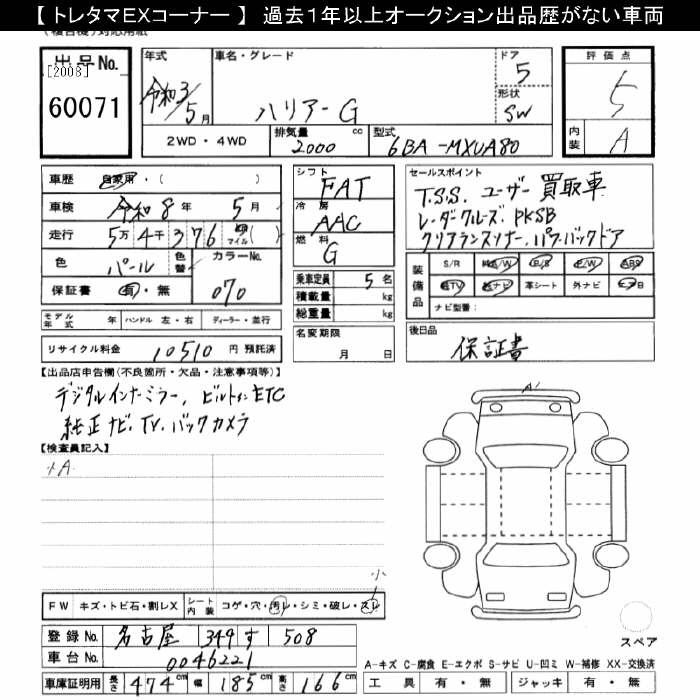 【 トレタマEXコーナー 】 過去１年以上オークション出品歴がない車両
出品No.
[2008]
60071
年式
令和3/5月
車名・グレード
ハリアー G
ドア
5
形状
SW
2WD・4WD
排気量 cc
2000
型式
6BA-MXUA80
評価点
5
内装
A
車歴 自家用・( )
車検 令和 8 年 5 月
走行 5万 4千 376 km マイル ( )
色 パール 色替 カラーNo. 070
保証書 有・無
モデル年式 年 ハンドル 左・右 ディーラー・並行
リサイクル料金 10510 円 預託済
シフト
FAT
冷房
AAC
燃料
G
乗車定員 5 名
積載量 kg
総重量 kg
名変期限
月 日
セールスポイント
T.S.S. ユーザー買取車
レーダークルーズ PKSB
クリアランスソナー、パワーバックドア
装備品
S/R 純A/W P/S P/W ABS
純TV 純ナビ 革シート 外ナビ エアB
ナビ型番：
後日品
保証書
【出品店申告欄(不良箇所・欠品・注意事項等)】
デジタルインナーミラー、ビルトインETC
純正ナビ、TV、バックカメラ
【検査員記入】
A1
FW キズ・トビ石・割レX シート内装 コゲ・穴・汚レ・シミ・破レ・スレ
小
登録No. 名古屋 344 す 508
車台No. 0046221
車庫証明用 長さ 474 cm 幅 185 cm 高さ 166 cm
スペア
A-キズ C-腐食 E-エクボ S-サビ U-凹ミ W-補修 XX-交換済
工具 有・無 ジャッキ 有・無